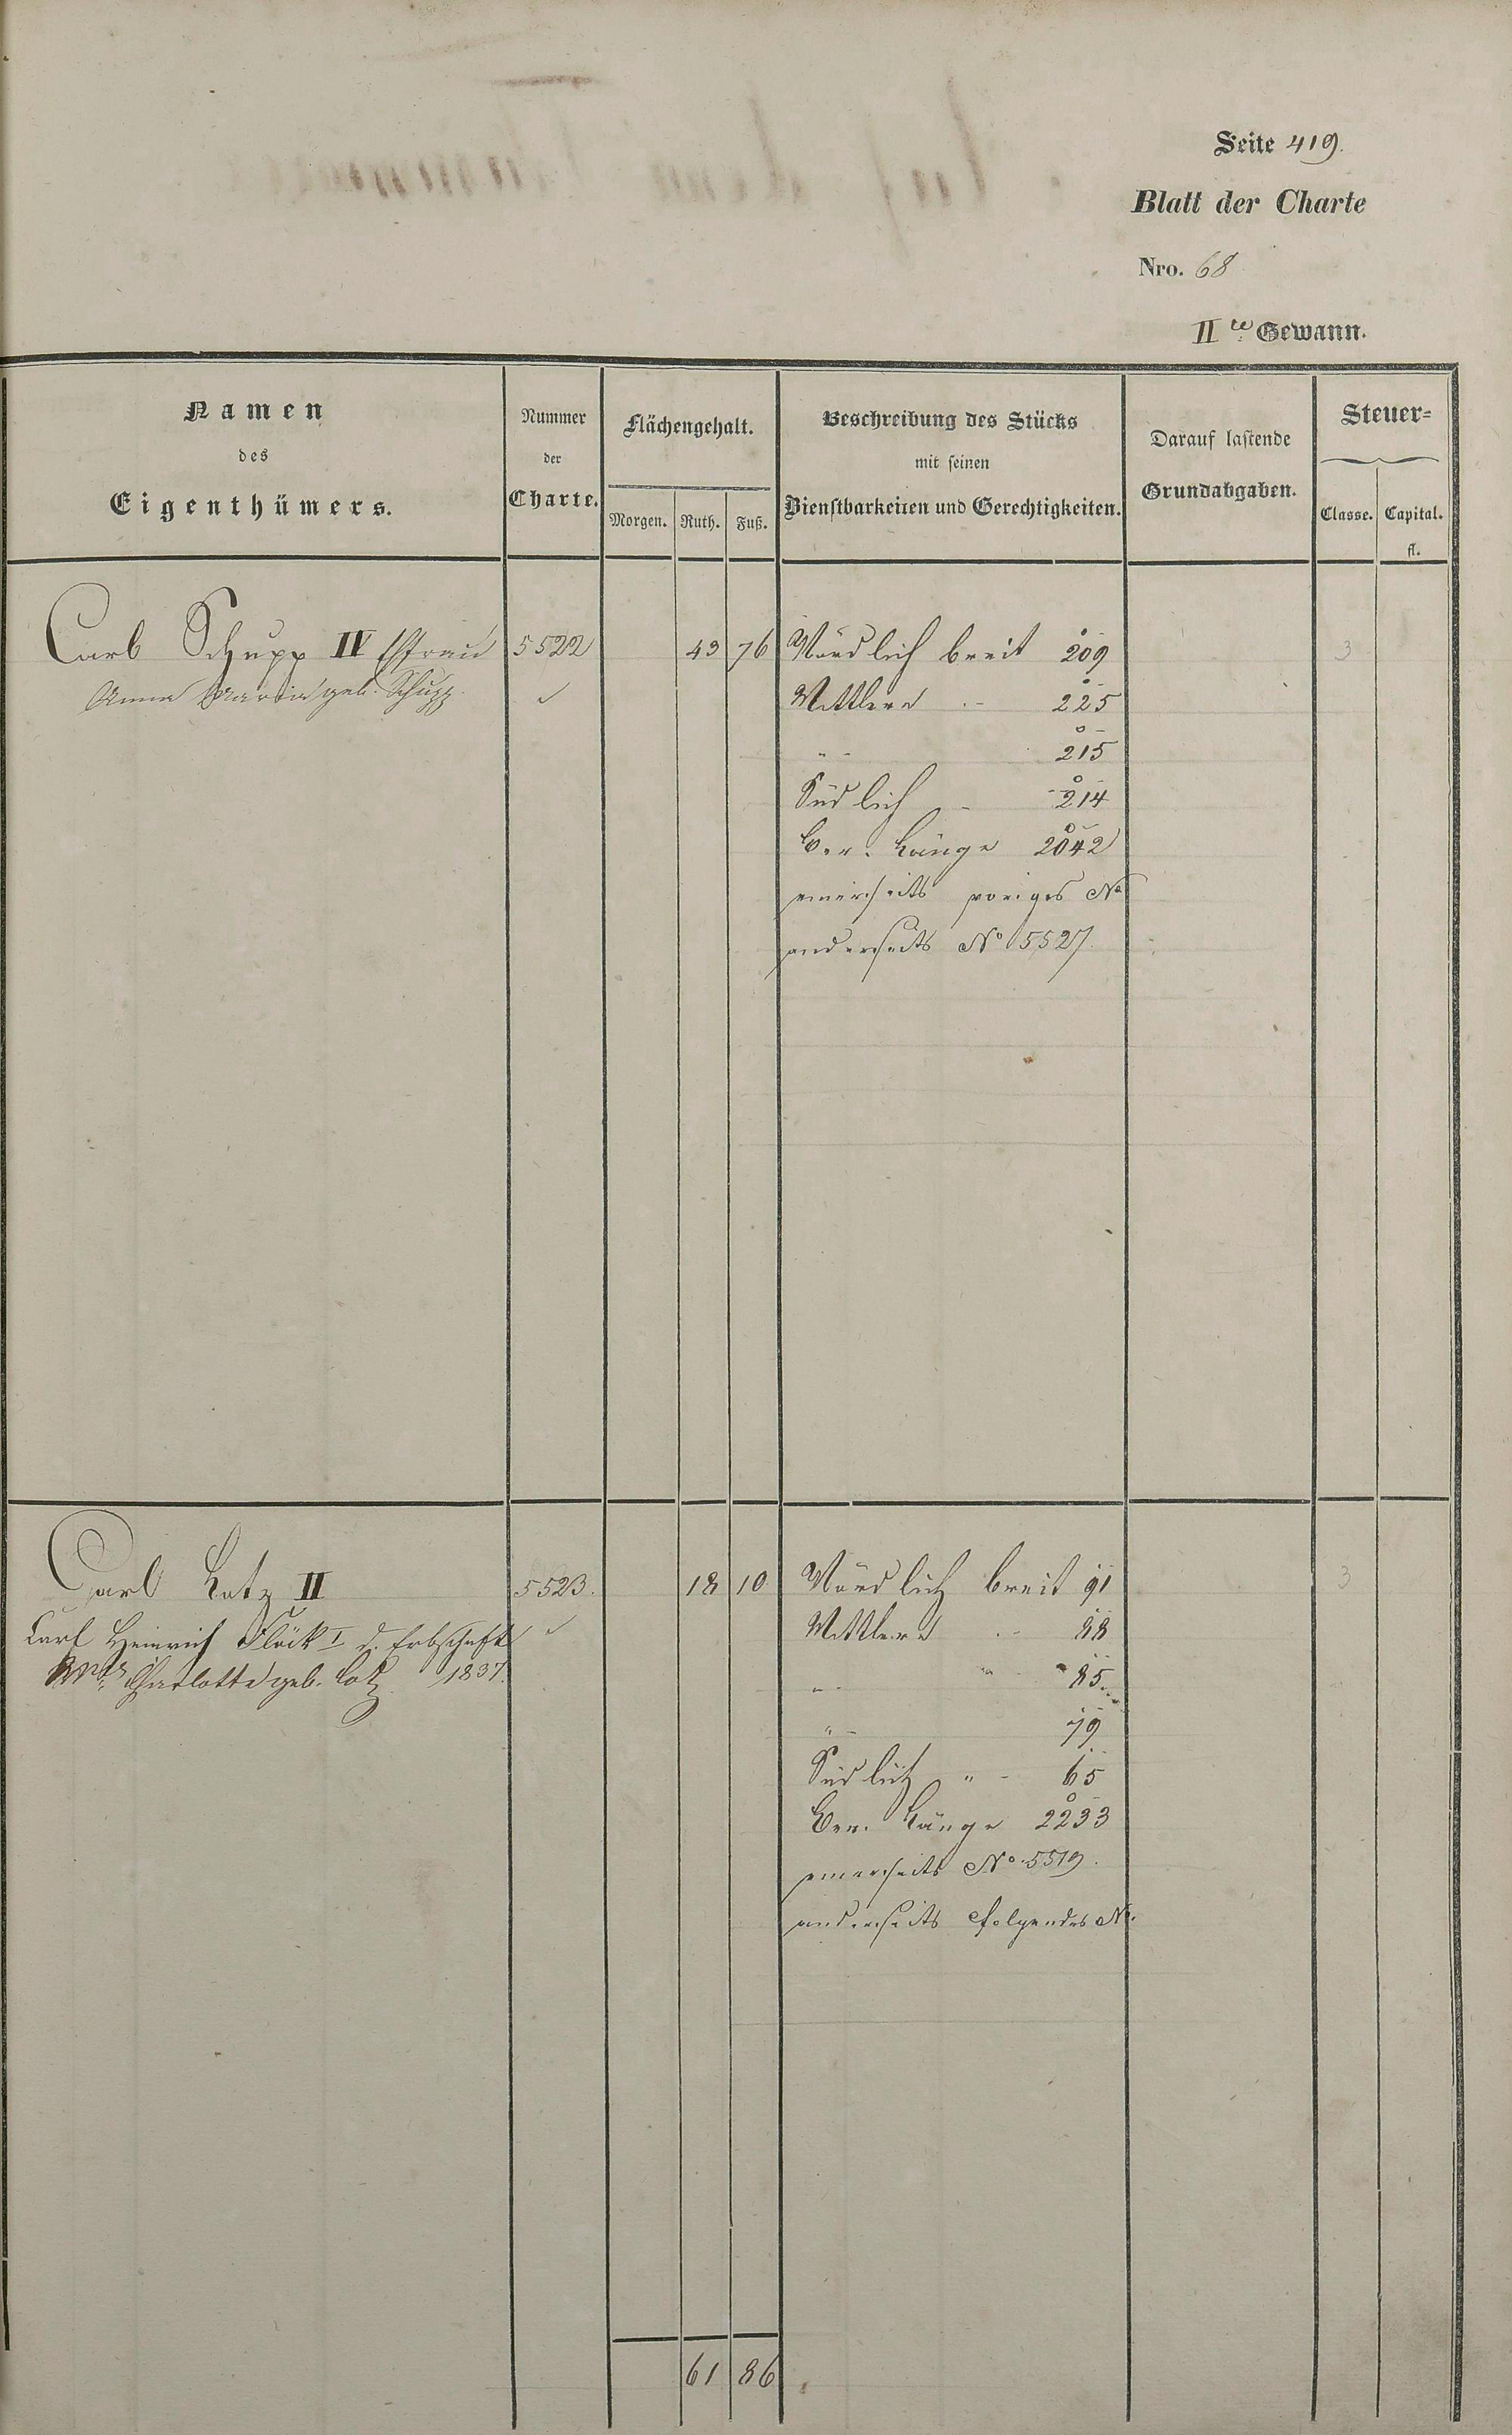 Seite 419.
Blatt der Charte
Nro. 68
II te Gewann.
Namen
des
Eigenthümers.
Nummer
der
Charte.
Flächengehalt.
Morgen. Ruth. Fuß.
Beschreibung des Stücks
mit seinen
Dienstbarkeiten und Gerechtigkeiten.
Darauf lastende
Grundabgaben.
Steuer=
Classe. Capital.
fl.
Carl Schupp IV Ehfrau 5522 43 76 Nördlich breit 209 3
Anna Maria geb. Schupp. Mittlere 〃 225
〃 215
Südlich 〃 214
Ber. Länge 2042
einerseits voriges No
anderseits No 5527.
Carl Lotz II 5523. 18 10 Nördlich breit 91 3
Carl Heinrich Flöck I d. Erbschaft Mittlere 〃 88
Charlotte geb. Lotz 1837. 〃 〃 85.
〃 79
Südlich 〃 65
Ber. Länge 2233
einerseits No. 5519.
anderseits folgendes No.
61 86